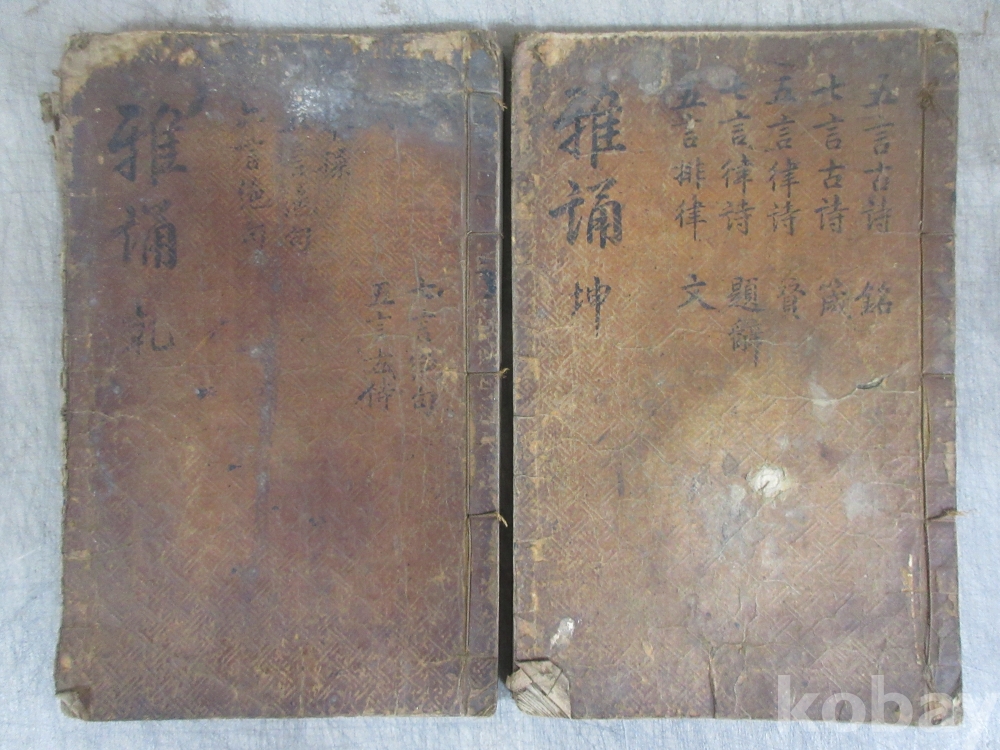 五言古詩 銘
七言古詩 箴
五言律詩 贊
七言律詩 題辭
五言排律 文
雅誦 坤
七言
五言
操
言絶句
絶句
雅誦 乾
kobay